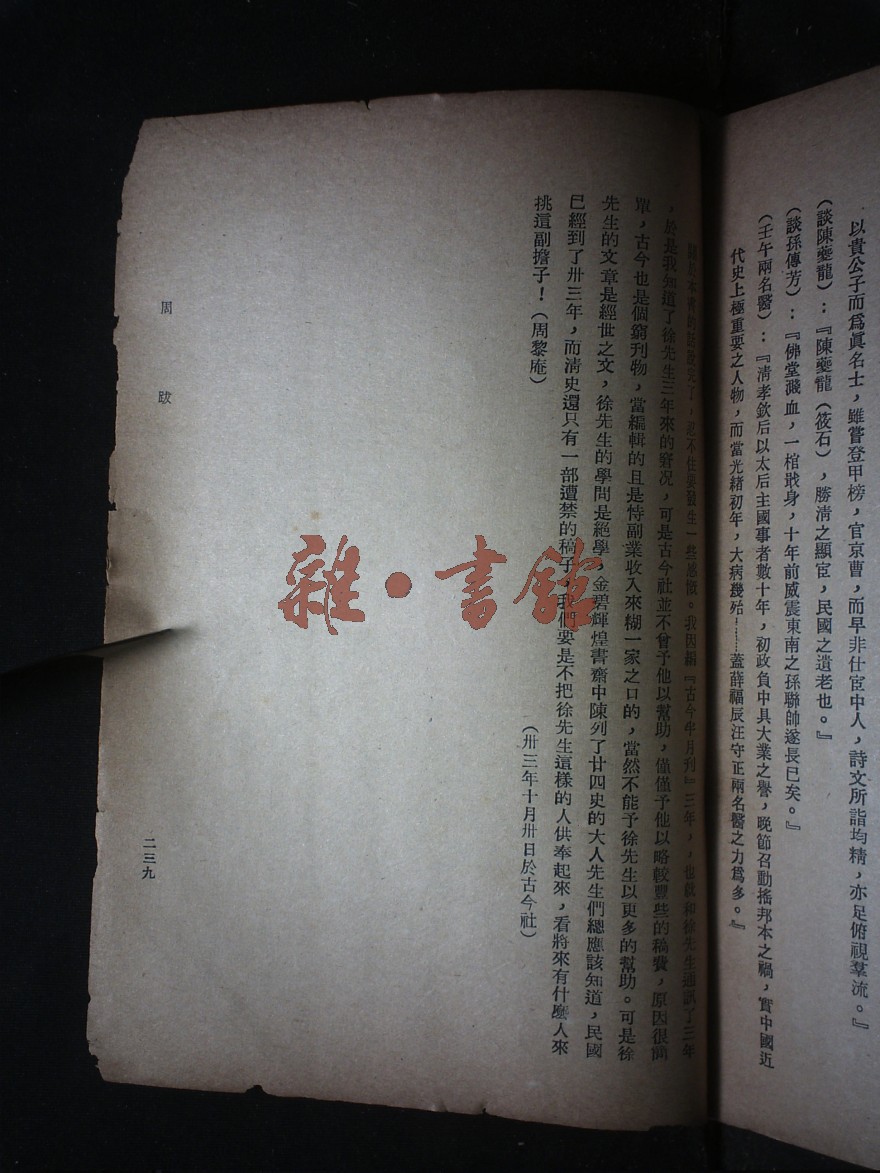 以貴公子而爲眞名士，雖嘗登甲榜，官京曹，而早非仕宦中人，詩文所詣均精，亦足俯視羣流。』
（談陳夔龍）：『陳夔龍（筱石），勝淸之顯宦，民國之遺老也。』
（談孫傳芳）：『佛堂濺血，一棺戢身，十年前威震東南之孫聯帥遂長已矣。』
（壬午兩名醫）：『淸孝欽后以太后主國事者數十年，初政負中具大業之譽，晚節召動搖邦本之禍，實中國近
代史上極重要之人物，而當光緖初年，大病幾殆！……蓋薛福辰汪守正兩名醫之力爲多。』
關於本書的話說完了，忍不住要發生一些感慨。我因編『古今半月刊』三年，，也就和徐先生通訊了三年
，於是我知道了徐先生三年來的窘况，可是古今社並不曾予他以幫助，僅僅予他以略較豐些的稿費，原因很簡
單，古今也是個窮刊物，當編輯的且是恃副業收入來糊一家之口的，當然不能予徐先生以更多的幫助。可是徐
先生的文章是經世之文，徐先生的學問是絕學，金碧輝煌書齋中陳列了廿四史的大人先生們總應該知道，民國
已經到了卅三年，而淸史還只有一部遭禁的稿子，我們要是不把徐先生這樣的人供奉起來，看將來有什麽人來
挑這副擔子！（周黎庵）
（卅三年十月卅日於古今社）
周 跋
二三九
雜·書館